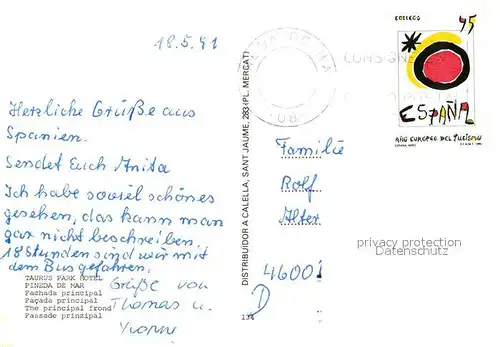 18.5.91
Herzliche Grüße aus
Spanien.
Sendet Euch Anita
Ich habe soviel schönes
gesehen, das kann man
gar nicht beschreiben.
18 Stunden sind wir mit
dem Bus gefahren.
TAURUS PARK HOTEL
PINEDA DE MAR
Fachada principal
Façada principal
The principal frond
Fassade prinzipal
Grüße von
Thomas u.
Yvonne
DISTRIBUIDOR A CALELLA, SANT JAUME, 283 (PL. MERCAT)
134
CORREOS
45
ESPAÑA
AÑO EUROPEO DEL TURISMO
Familie
Rolf
Alter
46001
D
privacy protection
Datenschutz